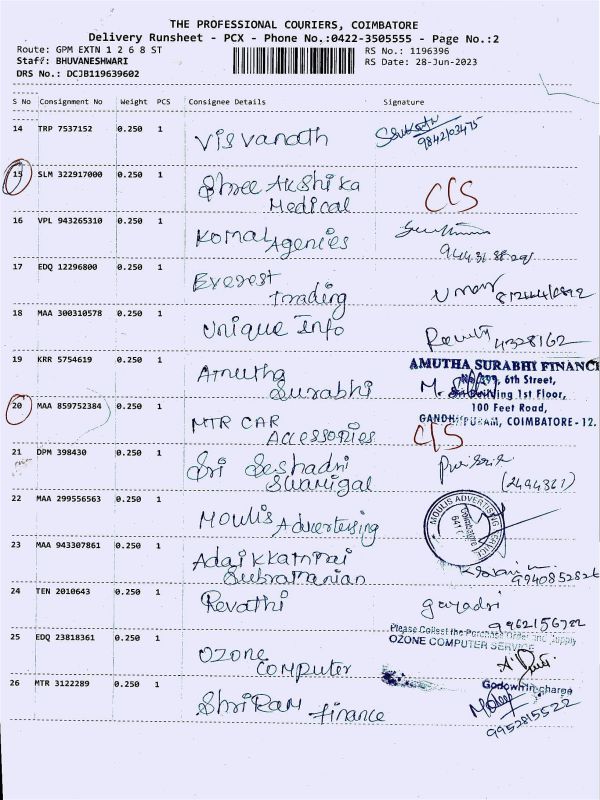 THE PROFESSIONAL COURIERS, COIMBATORE
Delivery Runsheet - PCX - Phone No.:0422-3505555 - Page No.:2
Route: GPM EXTN 1 2 6 8 ST
RS No.: 1196396
Staff: BHUVANESHWARI
RS Date: 28-Jun-2023
DRS No.: DCJB119639602
S No Consignment No Weight PCS Consignee Details Signature
14 TRP 7537152 0.250 1 Visvanath
9842103475
15 SLM 322917000 0.250 1 Shree Akshika
Medical
C/S
16 VPL 943265310 0.250 1 Komal Agencies
17 EDQ 12296800 0.250 1 Everest
Trading
18 MAA 300310578 0.250 1 Unique Info
4328162
19 KRR 5754619 0.250 1 Amutha
Surabhi
AMUTHA SURABHI FINANCE
6th Street,
1st Floor,
100 Feet Road,
GANDHIPURAM, COIMBATORE - 12.
20 MAA 859752384 0.250 1 MTR CAR
ACCESSORIES
C/S
21 DPM 398430 0.250 1 Sri Seshadri
Swamigal
(2494361)
22 MAA 299556563 0.250 1 Moulis Advertising
MOULIS ADVERTISING SERVICE
Coimbatore
23 MAA 943307861 0.250 1 Adaikkammai
Subramanian
9940852826
24 TEN 2010643 0.250 1 Revathi
gayadri
9962156722
25 EDQ 23818361 0.250 1 Ozone
Computer
Please Collect the Purchase Order and Supply
OZONE COMPUTER SERVICE
Godown in-charge
26 MTR 3122289 0.250 1 ShriRam Finance
9952815522